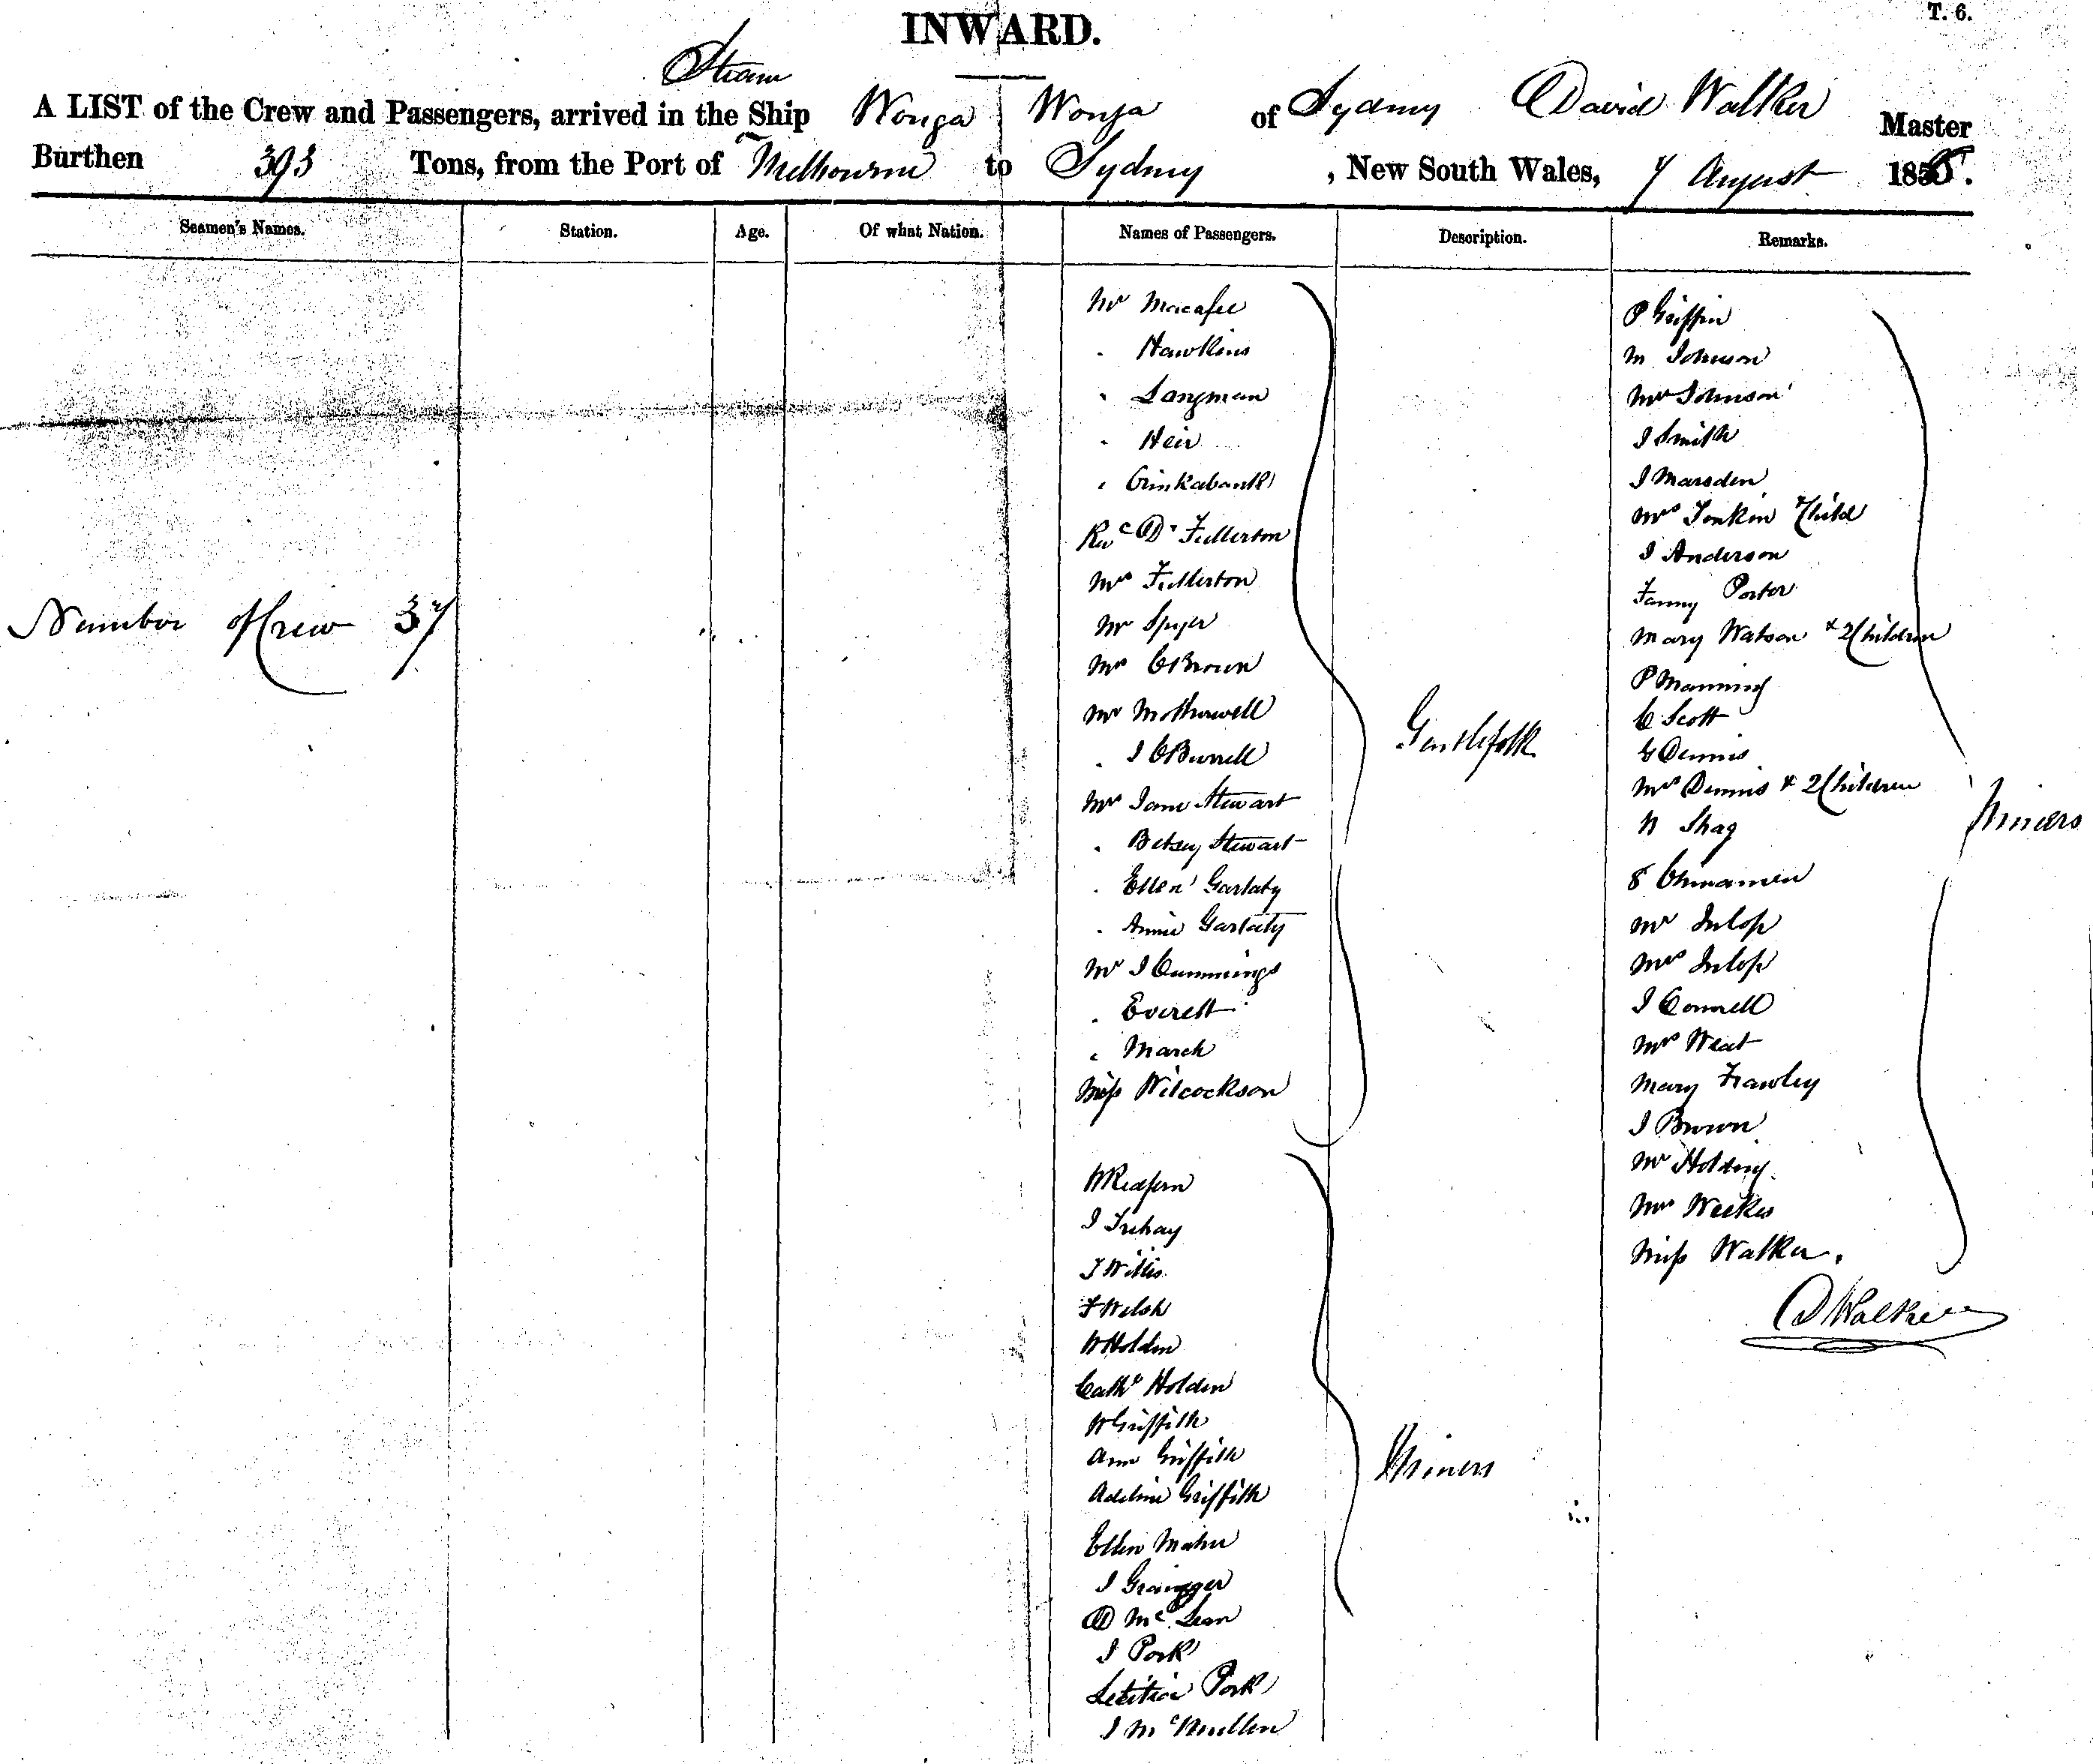 T. 6.
INWARD.
Steam
A LIST of the Crew and Passengers, arrived in the Ship Wonga Wonga of Sydney David Walker Master
Burthen 393 Tons, from the Port of Melbourne to Sydney, New South Wales, 7 August 185
Seamen's Names. Station. Age. Of what Nation. Names of Passengers. Description. Remarks.
Number of Crew 37
Mr Macafee
" Hawkins
" Langman
" Heir
Revd Dr Fullerton
Mrs Fullerton
Mr Spyer
Mrs C Brown
Mr Motherwell
" J C Burrell
Mrs Jane Stewart
" Betsey Stewart
" Ellen Garlaty
" Annie Garlaty
Mr J Cummings
" Everett
" March
Miss Wilcockson
Gentlefolk
W Redfern
J Trehay
J Willis
F Welsh
W Holden
Cathe Holden
W Griffith
Ann Griffith
Adeline Griffith
Ellen Maher
J Grainger
D McLean
J Pork
Letitia Pork
J McMullen
Miners
P Griffin
M Johnson
Mrs Johnson
J Smith
J Marsden
Mrs Tonkin & Child
J Anderson
Fanny Porter
Mary Watson & 2 Children
P Manning
C Scott
G Dennis
Mrs Dennis & 2 Children
N Shag
8 Chinamen
Mr Inlop
Mrs Inlop
J Connell
Mrs Weat
Mary Frawley
J Brown
Mr Holding
Mrs Weekes
Miss Walker.
Miners
D Walker